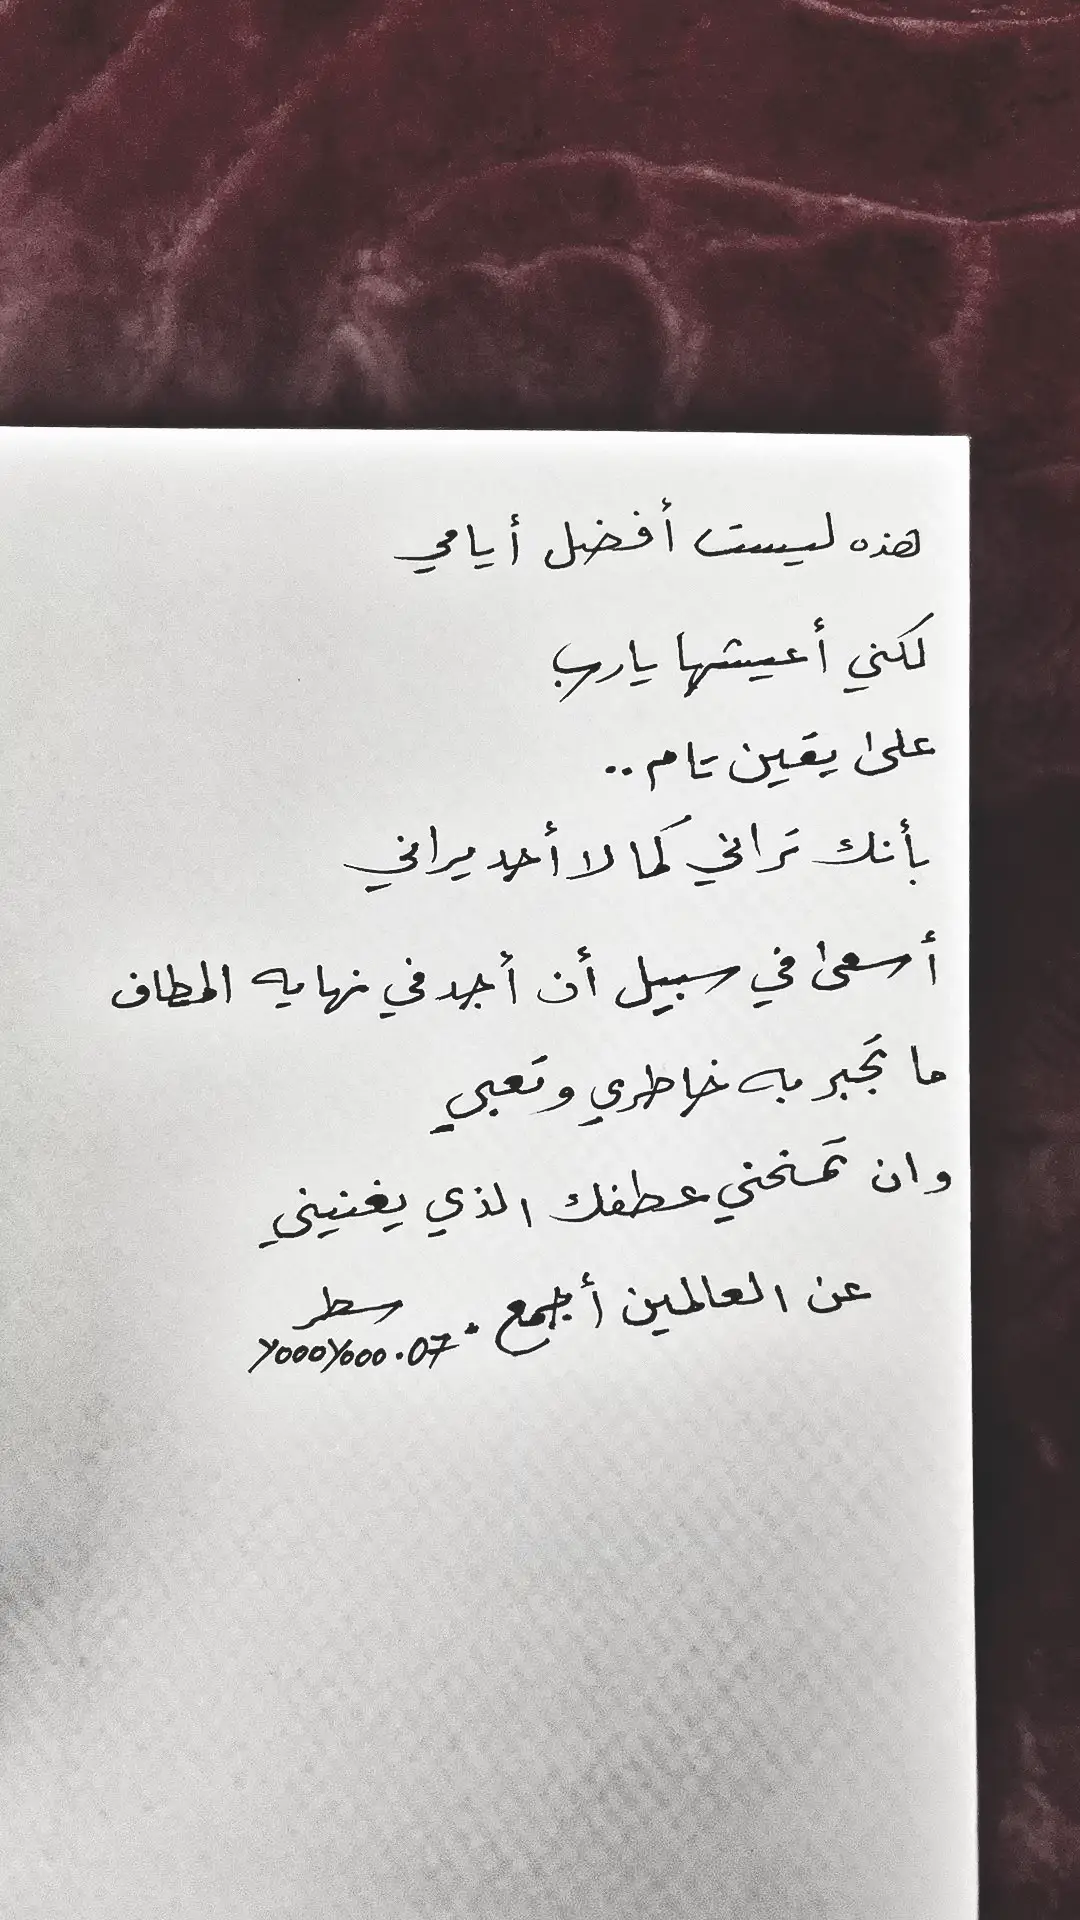 هذه ليست أفضل أيامي
لكني أعيشها يارب
على يقين تام ..
بأنك تراني كما لا أحد يراني
أسعى في سبيل أن أجد في نهايه المطاف
ما تجبر به خاطري وتعبي
وان تمنحني عطفك الذي يغنيني
عن العالمين أجمع .
سطر
y000y000.07